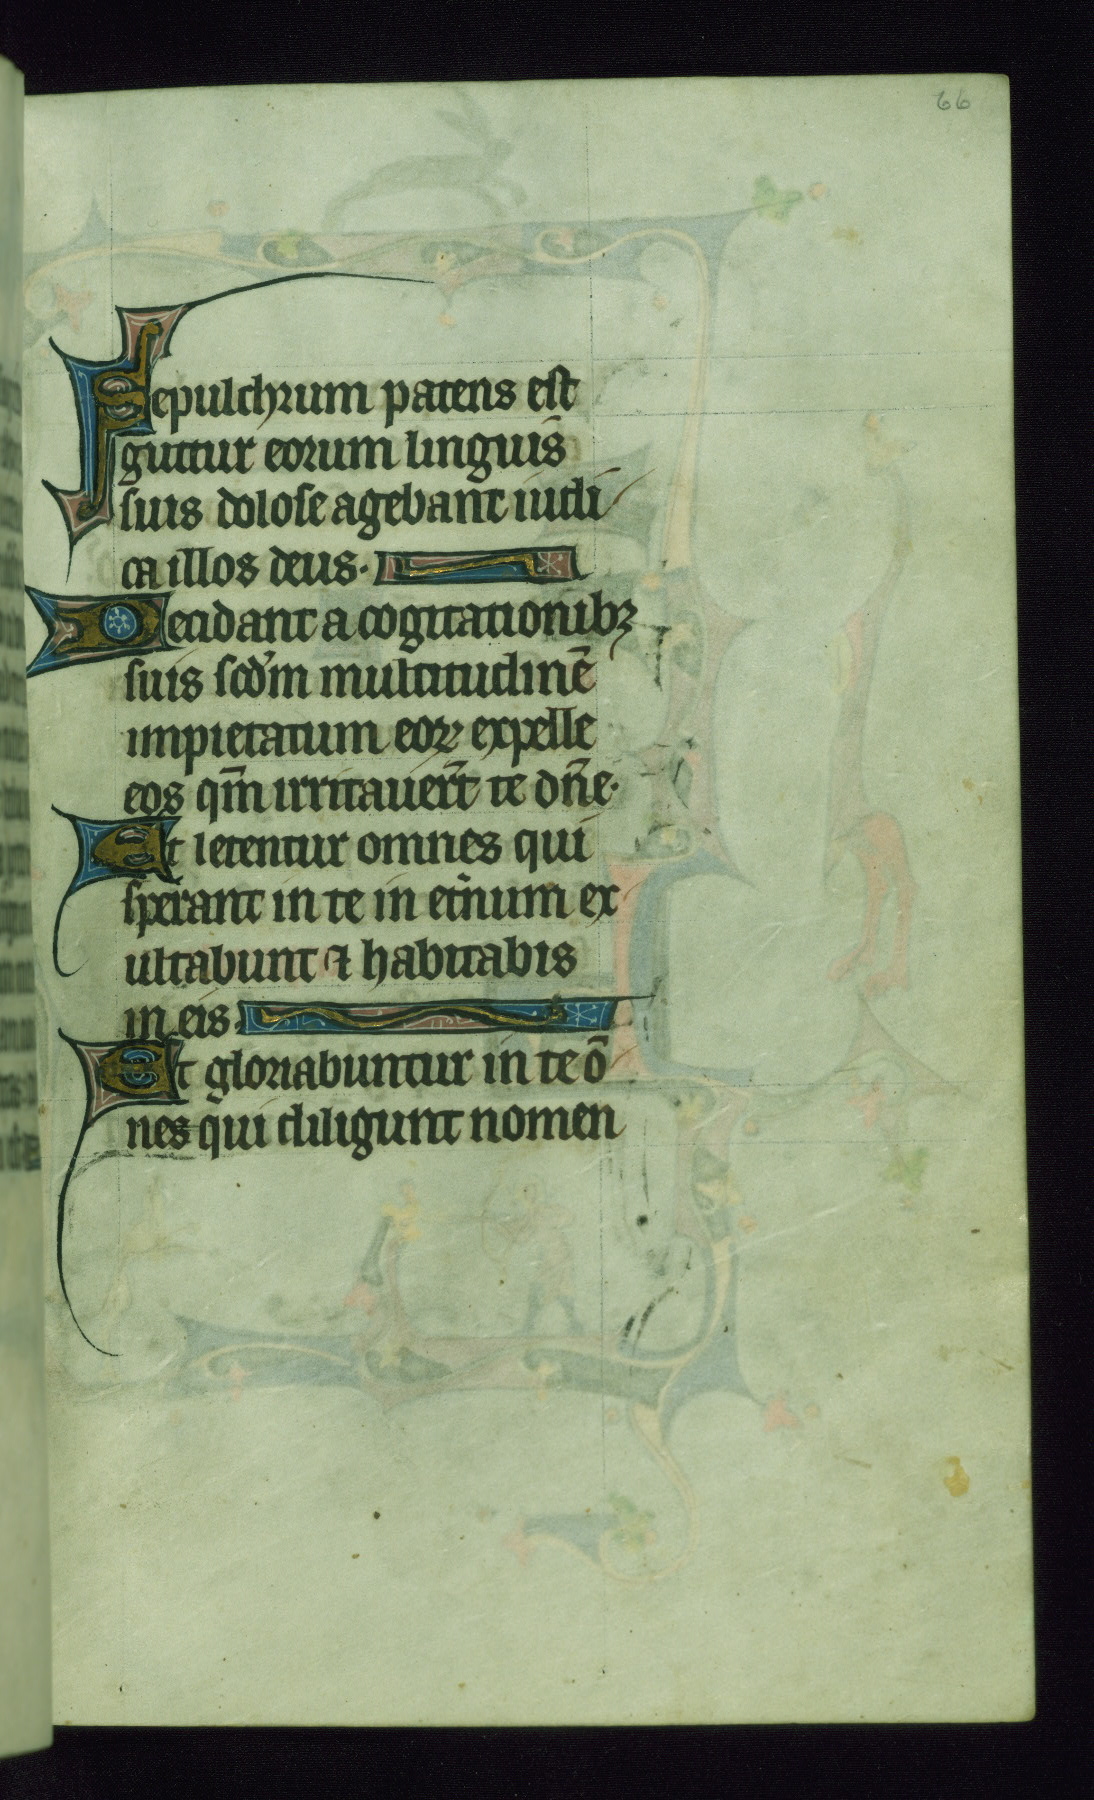 66
Sepulchrum patens est
guttur eorum linguis
suis dolose agebant iudi
ca illos deus.
Decidant a cogitationibꝫ
suis scd̾m multitudinē
impietatum eoꝝ expelle
eos qm̄ irritauer̄t te dn̄e.
Et letentur omnes qui
sperant in te in et̾num ex
ultabunt ⁊ habitabis
in eis.
Et gloriabuntur in te ō
nes qui diligunt nomen